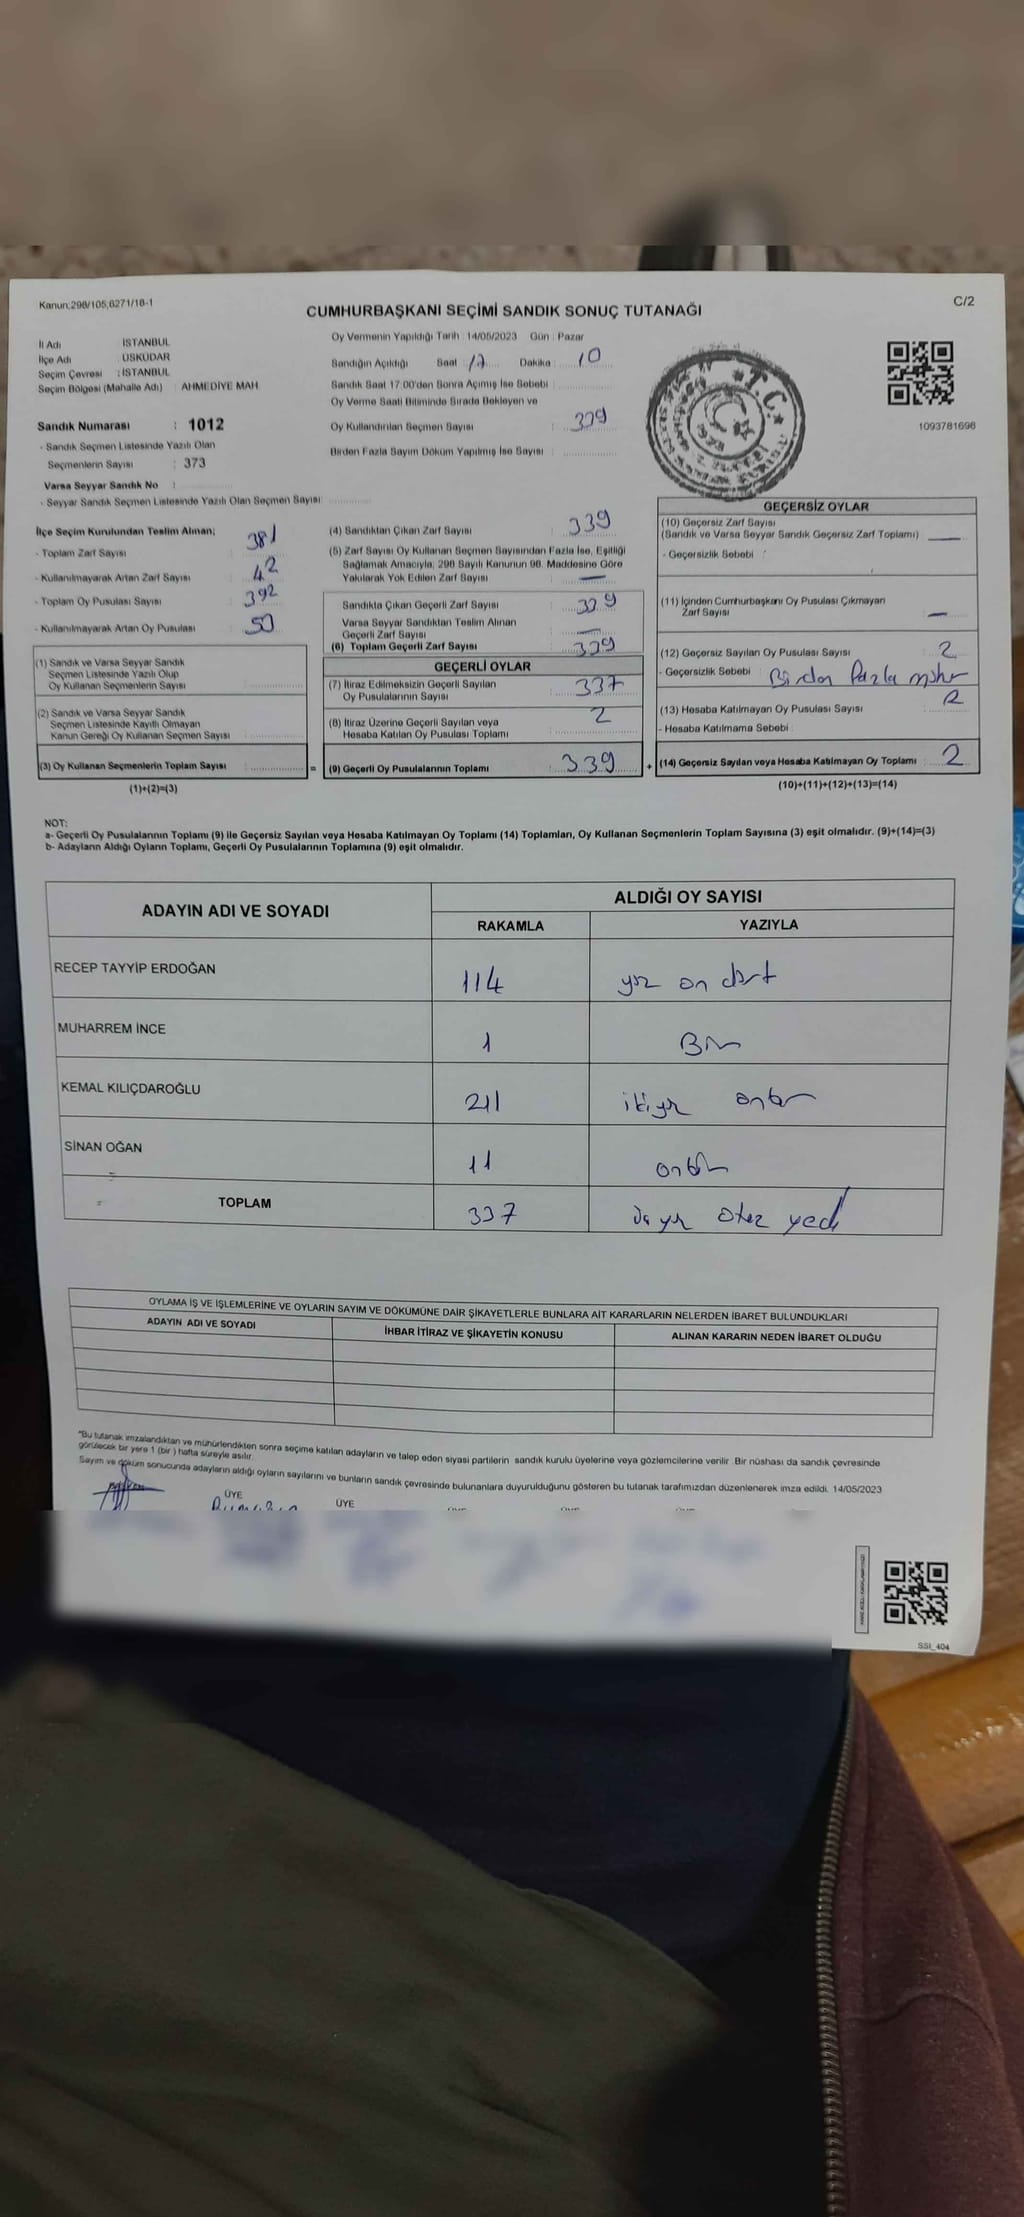 Kanun;298/105,6271/18-1
C/2
CUMHURBAŞKANI SEÇİMİ SANDIK SONUÇ TUTANAĞI
İl Adı İSTANBUL
İlçe Adı : ÜSKÜDAR
Seçim Çevresi : İSTANBUL
Seçim Bölgesi (Mahalle Adı) : AHMEDİYE MAH
Oy Vermenin Yapıldığı Tarih : 14/05/2023 Gün : Pazar
Sandığın Açıldığı Saat : 17 Dakika : 10
Sandık Saat 17:00'den Sonra Açımış İse Sebebi :
Oy Verme Saati Bitiminde Sırada Bekleyen ve
Oy Kullandırılan Seçmen Sayısı : 339
Birden Fazla Sayım Döküm Yapılmış İse Sayısı :
T.C.
1093781696
Sandık Numarası : 1012
- Sandık Seçmen Listesinde Yazılı Olan
Seçmenlerin Sayısı : 373
Varsa Seyyar Sandık No :
- Seyyar Sandık Seçmen Listesinde Yazılı Olan Seçmen Sayısı:
İlçe Seçim Kurulundan Teslim Alınan;
- Toplam Zarf Sayısı 381
- Kullanılmayarak Artan Zarf Sayısı 42
- Toplam Oy Pusulası Sayısı 392
- Kullanılmayarak Artan Oy Pusulası 50
(1) Sandık ve Varsa Seyyar Sandık
Seçmen Listesinde Yazılı Olup
Oy Kullanan Seçmenlerin Sayısı :
(2) Sandık ve Varsa Seyyar Sandık
Seçmen Listesinde Kayıtlı Olmayan
Kanun Gereği Oy Kullanan Seçmen Sayısı :
(3) Oy Kullanan Seçmenlerin Toplam Sayısı :
(1)+(2)=(3)
(4) Sandıktan Çıkan Zarf Sayısı : 339
(5) Zarf Sayısı Oy Kullanan Seçmen Sayısından Fazla İse, Eşitliği
Sağlamak Amacıyla, 298 Sayılı Kanunun 98. Maddesine Göre
Yakılarak Yok Edilen Zarf Sayısı : —
Sandıkta Çıkan Geçerli Zarf Sayısı : 339
Varsa Seyyar Sandıktan Teslim Alınan
Geçerli Zarf Sayısı : —
(6) Toplam Geçerli Zarf Sayısı : 339
GEÇERLİ OYLAR
(7) İtiraz Edilmeksizin Geçerli Sayılan
Oy Pusulalarının Sayısı : 337
(8) İtiraz Üzerine Geçerli Sayılan veya
Hesaba Katılan Oy Pusulası Toplamı : 2
= (9) Geçerli Oy Pusulalarının Toplamı : 339
GEÇERSİZ OYLAR
(10) Geçersiz Zarf Sayısı
(Sandık ve Varsa Seyyar Sandık Geçersiz Zarf Toplamı) : —
- Geçersizlik Sebebi :
(11) İçinden Cumhurbaşkanı Oy Pusulası Çıkmayan
Zarf Sayısı : —
(12) Geçersiz Sayılan Oy Pusulası Sayısı : 2
- Geçersizlik Sebebi : Birden fazla mühür
(13) Hesaba Katılmayan Oy Pusulası Sayısı : 2
- Hesaba Katılmama Sebebi :
+ (14) Geçersiz Sayılan veya Hesaba Katılmayan Oy Toplamı : 2
(10)+(11)+(12)+(13)=(14)
NOT:
a- Geçerli Oy Pusulalarının Toplamı (9) ile Geçersiz Sayılan veya Hesaba Katılmayan Oy Toplamı (14) Toplamları, Oy Kullanan Seçmenlerin Toplam Sayısına (3) eşit olmalıdır. (9)+(14)=(3)
b- Adayların Aldığı Oyların Toplamı, Geçerli Oy Pusulalarının Toplamına (9) eşit olmalıdır.
ADAYIN ADI VE SOYADI ALDIĞI OY SAYISI
RAKAMLA YAZIYLA
RECEP TAYYİP ERDOĞAN 114 yüz on dört
MUHARREM İNCE 1 Bir
KEMAL KILIÇDAROĞLU 211 ikiyüz onbir
SİNAN OĞAN 11 onbir
TOPLAM 337 üç yüz otuz yedi
OYLAMA İŞ VE İŞLEMLERİNE VE OYLARIN SAYIM VE DÖKÜMÜNE DAİR ŞİKAYETLERLE BUNLARA AİT KARARLARIN NELERDEN İBARET BULUNDUKLARI
ADAYIN ADI VE SOYADI İHBAR İTİRAZ VE ŞİKAYETİN KONUSU ALINAN KARARIN NEDEN İBARET OLDUĞU
"Bu tutanak imzalandıktan ve mühürlendikten sonra seçime katılan adayların ve talep eden siyasi partilerin sandık kurulu üyelerine veya gözlemcilerine verilir .Bir nüshası da sandık çevresinde
görülecek bir yere 1 (bir ) hafta süreyle asılır.
Sayım ve döküm sonucunda adayların aldığı oyların sayılarını ve bunların sandık çevresinde bulunanlara duyurulduğunu gösteren bu tutanak tarafımızdan düzenlenerek imza edildi. 14/05/2023
ÜYE ÜYE
SSI_404